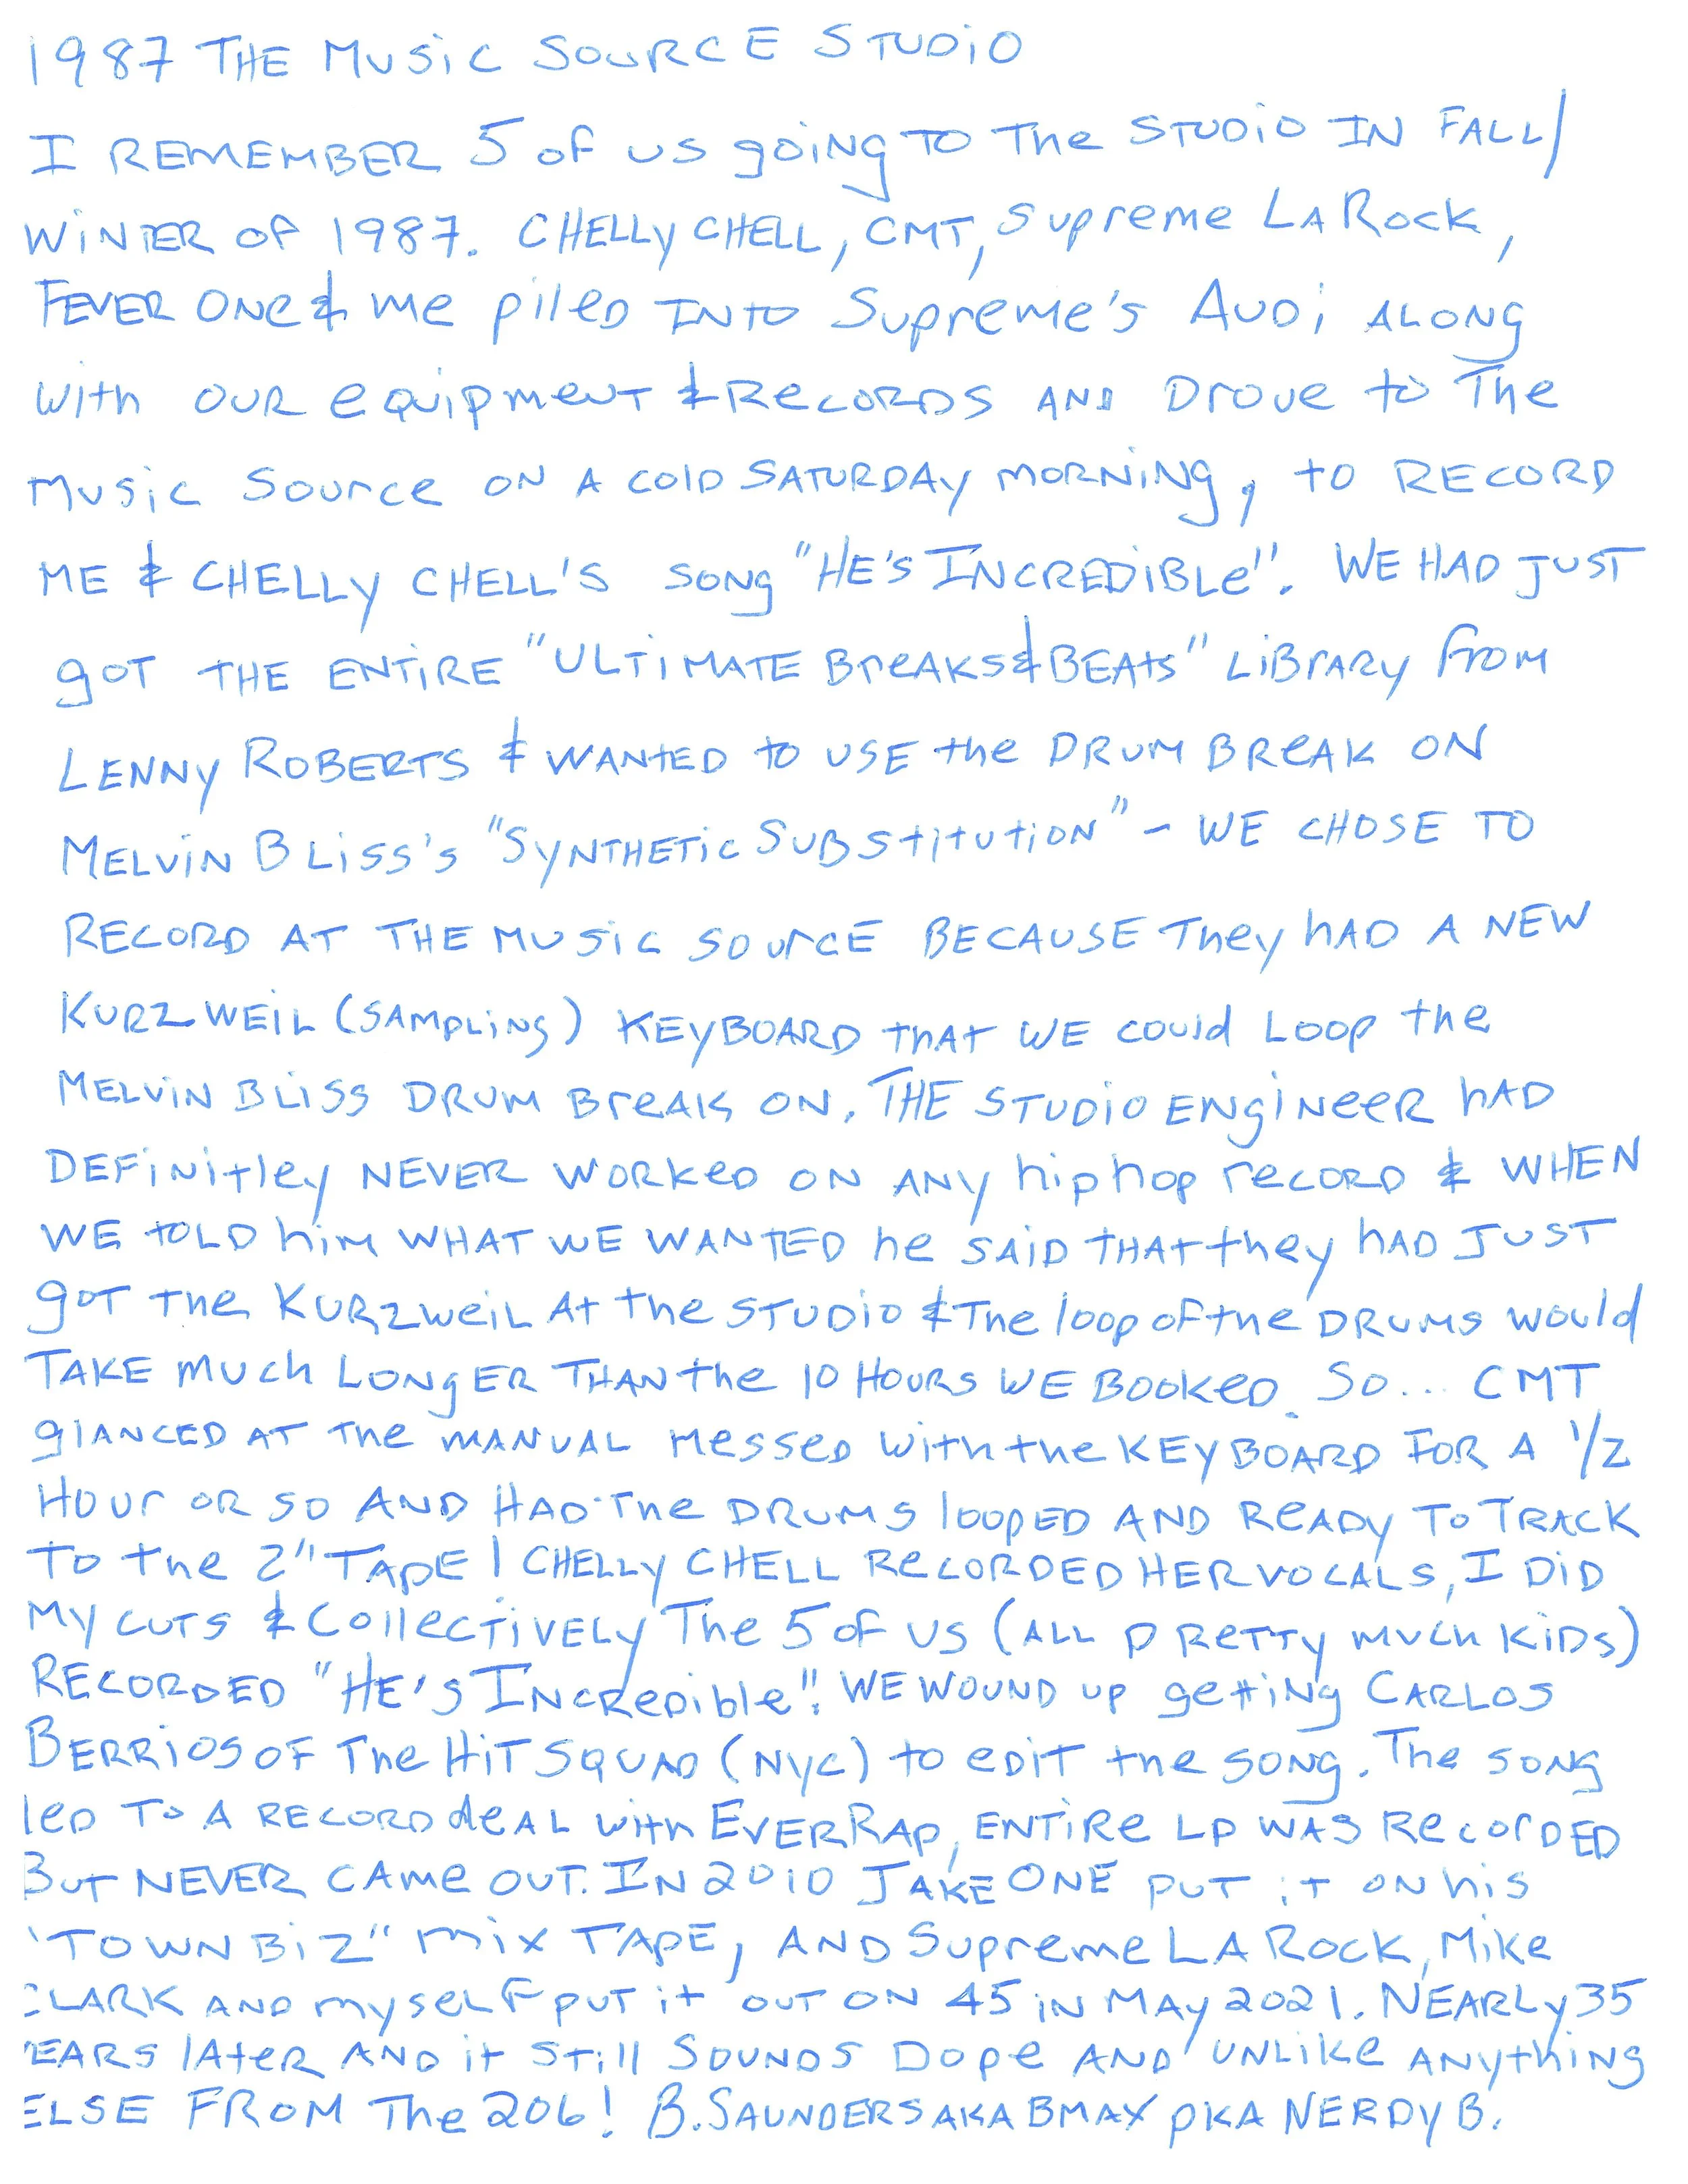 1987 THE MUSiC SOURCE STUDiO
I REMEMBER 5 of us goiNg TO The STUDiO IN FALL/
WiNTER of 1987. CHELLy CHELL, CMT, Supreme LA Rock,
FEVER ONe & me pileD INTO Supreme's AUDi ALONg
with OUR equipmeNT & RecoRDS AND Drove to The
Music Source ON A colD SATURDAy MORNiNg, to RECORD
ME & CHELLy CHELL'S SONg "HE'S INCREDiBLe". WE HAD JUST
goT THE ENTiRE "ULTiMATE BreAKS & BEAts" LiBrARy from
LENNy ROBERTS & WANtED to USE the DRUM BREAK ON
MELViN BLiSS's "SyNTHETic SUBStitutiON" - WE CHOSE TO
RECORD AT THE MUSic SourcE BECAUSE They hAD A NEW
KURZWEiL (SAMpLiNg) KEyBOARD thAt WE could LOOp the
MELViN BLiSS DRUM BreAK ON. THE STUDiO ENgiNeeR hAD
DEFiNitley NEVER WORKeD ON ANy hip hop recORD & WHEN
WE tOLD hiM WHAT WE WANTED he SAiD THAt they hAD JUST
goT the KURZweiL At the STUDiO & The loop of the DRUMS would
TAKE much LONgER THAN the 10 HOURS WE BOOKeD. So... CMT
glANCED AT The MANUAL Messed With the KEyBOARD FOR A 1/2
Hour OR SO AND HAD The DRUMS loopED AND ReADy To TRACK
To the 2" TApE! CHELLy CHELL RecORDED HER VOCALS, I DiD
My cuTS & CollecTiVELy The 5 of us (ALL pReTTy much KiDS)
RECORDED "HE'S INcReDible"! WE WOUND up gettiNg CARLOS
BERRiOS OF The HiT SQUAD (Nyc) to eDiT the SONg. The SONg
leD To A RECORD deAL with EVERRAp, ENTiRe Lp WAS RecorDED
BuT NEVER CAme OUT. IN 2010 JAKE ONE puT iT ON his
"TOWN BiZ" mix TApE, AND Supreme LA Rock, Mike
CLARK AND myseLF puT it out ON 45 iN MAy 2021. NEARLy 35
YEARS lAteR AND it STill SOUNDS Dope AND UNLiKe ANythiNg
ELSE FROM The 206! B.SAUNDERS AKA BMAX pKA NERDy B.